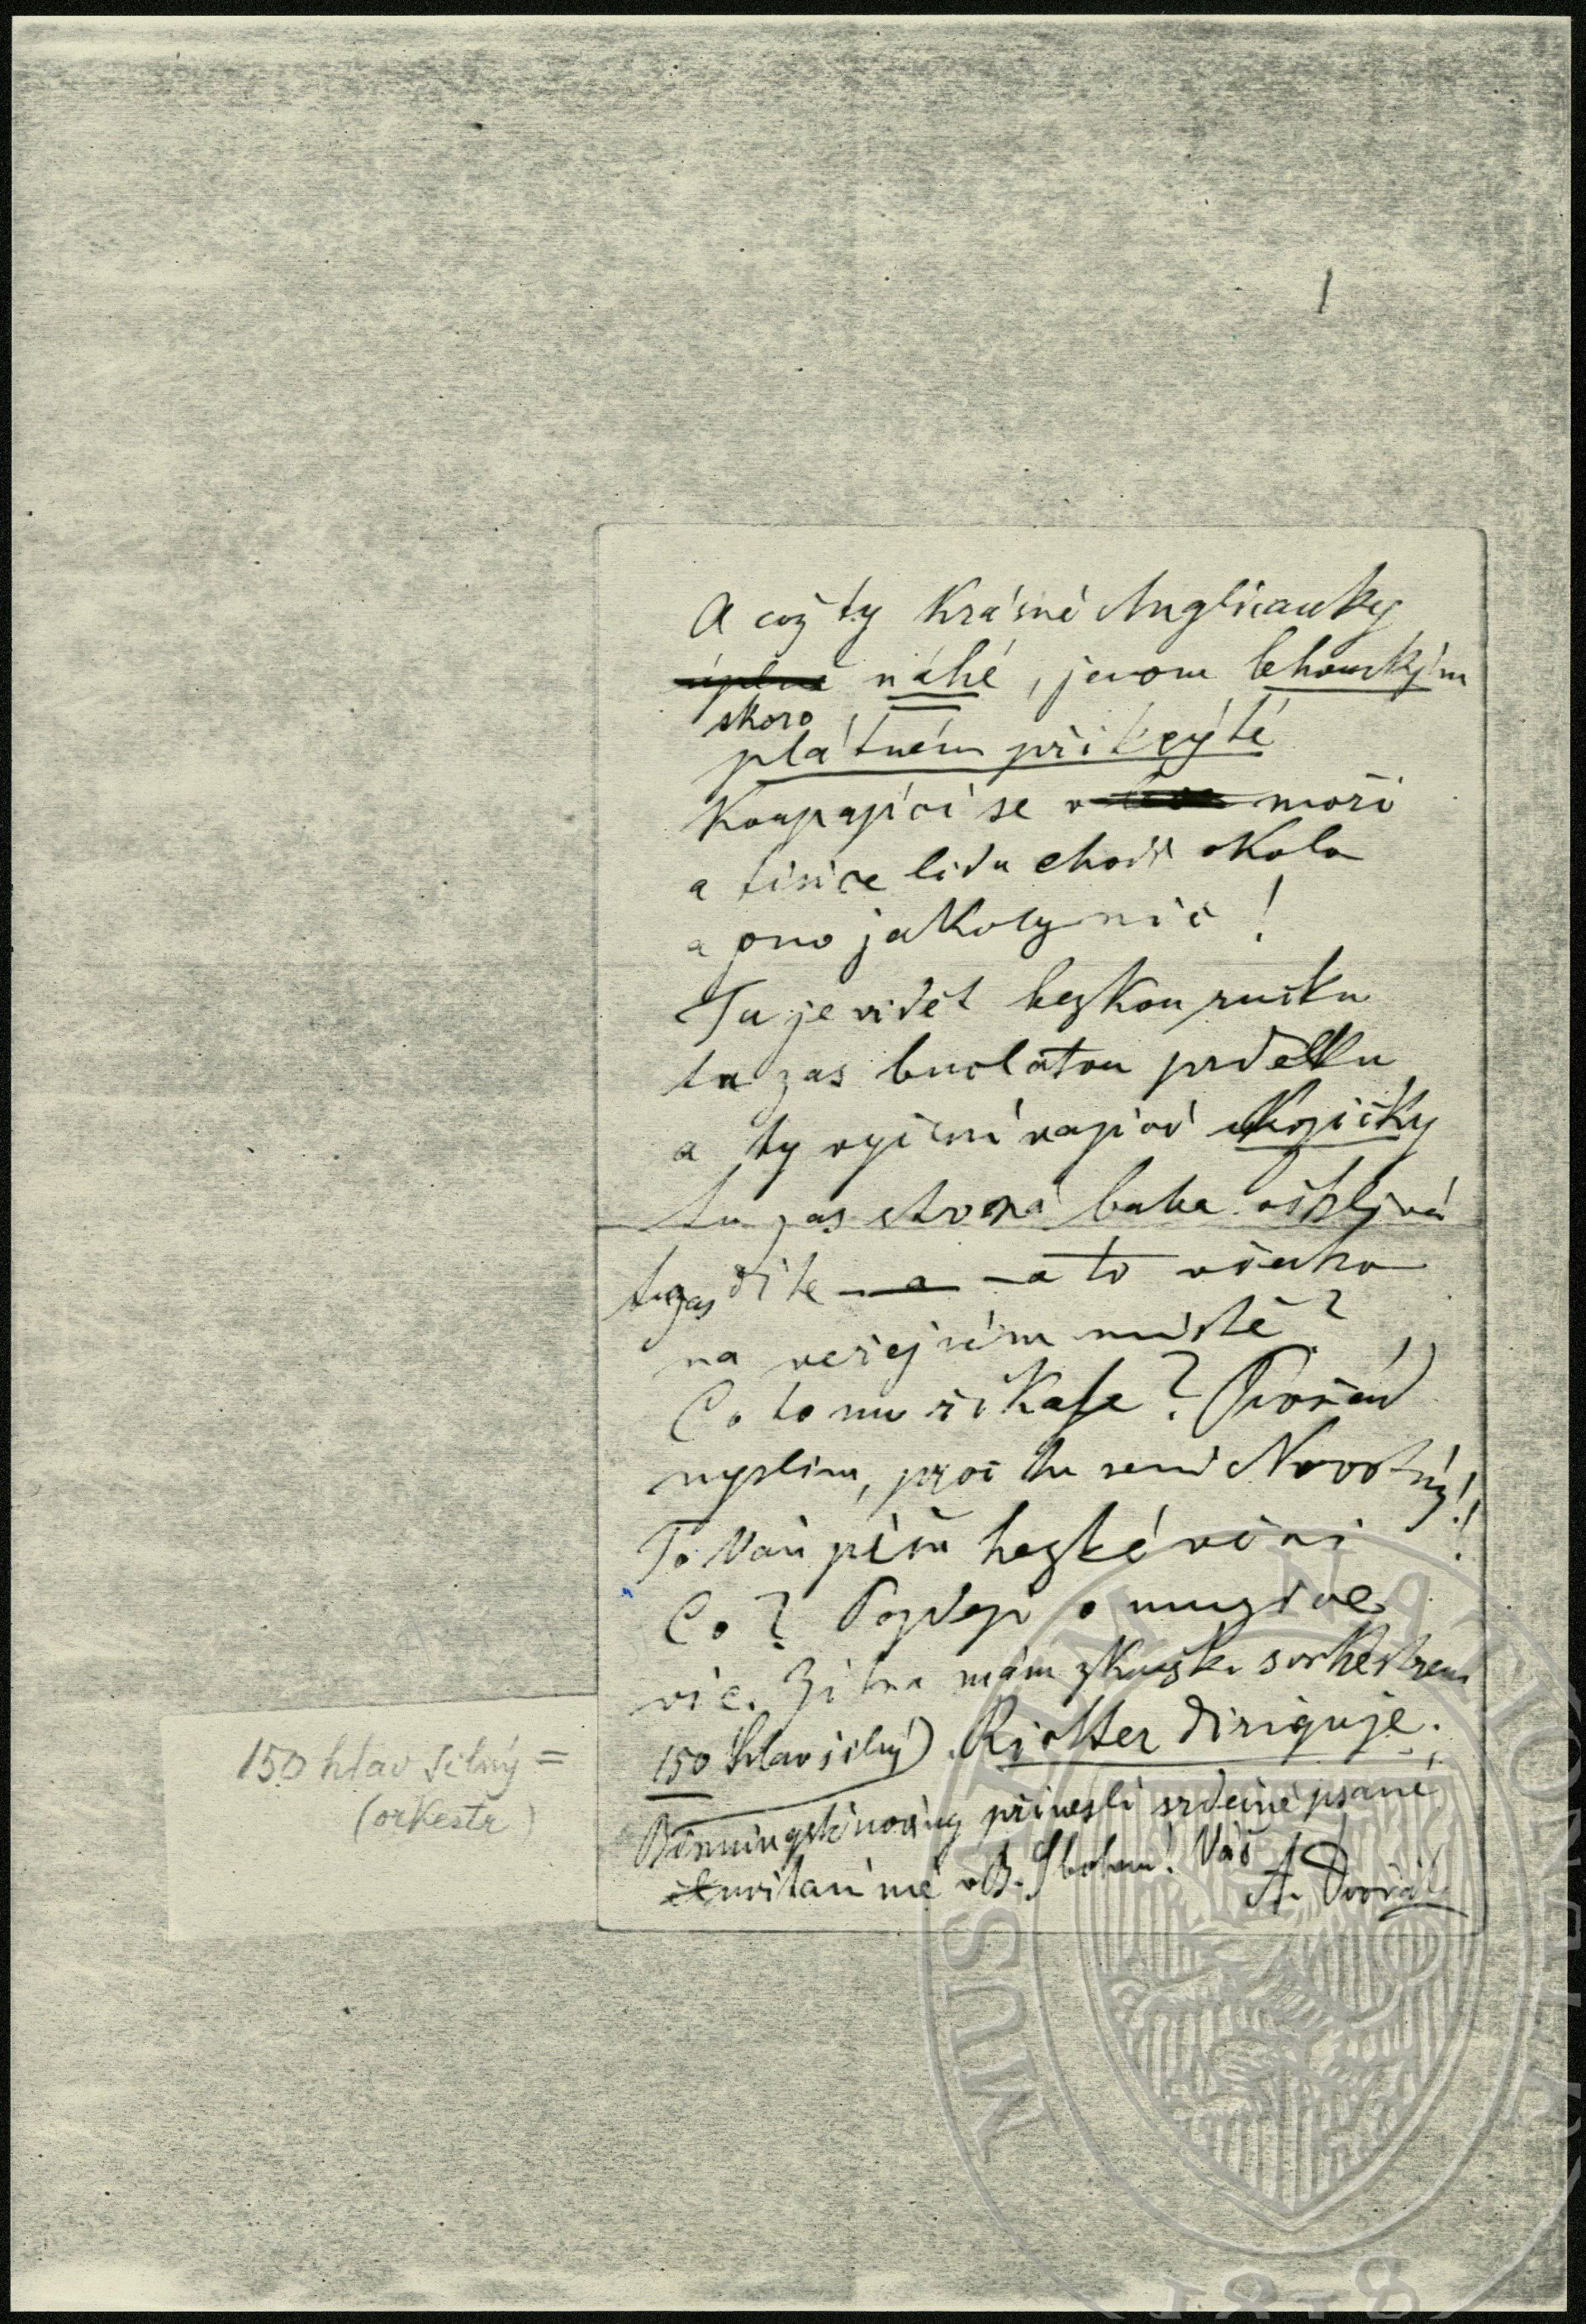 1
A což ty krásné Angličanky
úplně náhé, jenom lehounkým
skoro
plátnem přikryté
Koupající se v moři
a tisíce lidu chodí okolo
a ono jakoby nic!
Tu je vidět hezkou ručku
tu zas buclatou prdelku
a ty vyčnívající kozičky
tu zas stvorá baba ošklivá
tu zas dite – a – a to všecko
na veřejném místě?
Co tomu říkate? (Pořád
myslím, proč tu není Novotný!!)
To Vám píšu hezké věci!
Co? Pozdeji o muzice
víc. Zítra mám zkoušku s orkestrem
150 hlav silný) Richter diriguje.
Birminghské noviny přinesli srdečné psané
uvítaní mé v B. S bohem! Váš
A. Dvořák
150 hlav silný =
(orkestr)
MUSEUM NATIONALE
1818